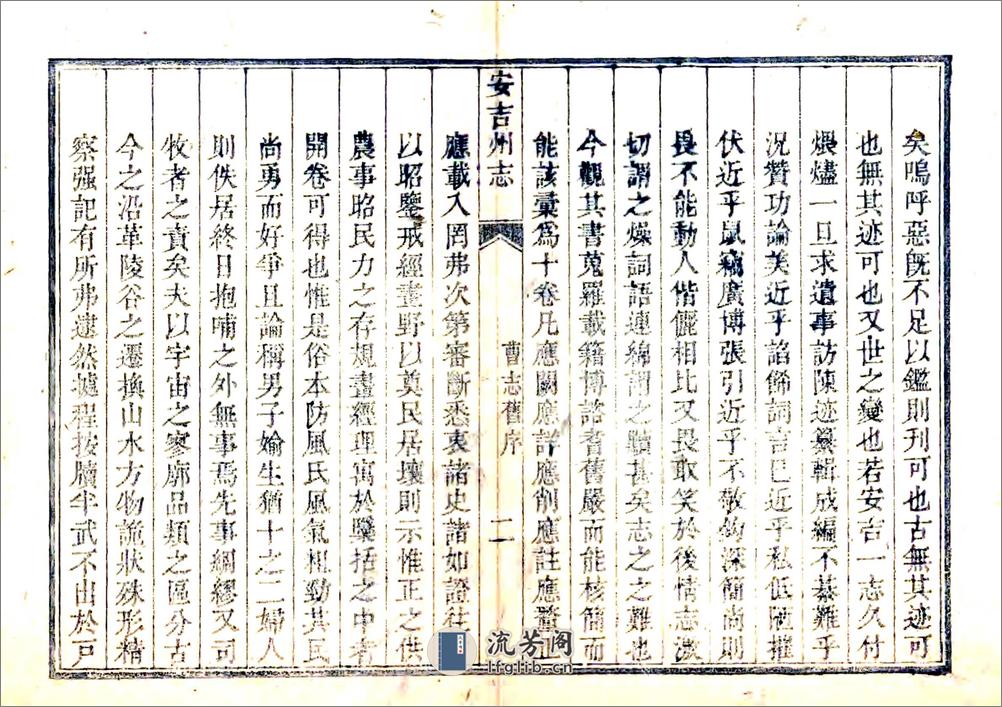 矣嗚呼惡既不足以鑑則刋可也古無其迹可
也無其迹可也又世之變也若安吉一志久付
煨燼一旦求遺事訪陳迹纂輯成編不綦難乎
況贊功論美近乎諂俻詞言巳近乎私低陋摧
伏近乎鼠竊廣博張引近乎不敬鈎深簡尚則
長不能動人偕儷相比又畏取笑於後情志激
切謂之燥詞語連綿謂之贖甚矣志之之難也
今觀其書蒐羅載籍博諮耆舊嚴而能核簡而
能該彙爲十卷凡應闗應詳應削應註應
安吉州志
曹志舊序
二
應載入罔弗次第審斷悉衷諸史諸如證往
以昭鑒戒經畫野以奠民居壤則示惟正之供
農事昭民力之存規畫經理寓於櫽括之中者
開卷可得也惟是俗本防風氏風氣相勁其民
尚勇而好爭且論稱男子媮生猶十之二婦人
則佚居終日抱哺之外無事焉先事綢繆又司
牧者之責矣夫以宇宙之寥廓品類之區分古
今之沿革陵谷之遷換山水方物詭狀殊形精
察强記有所弗逮然墟程按牘半武不出於戸
流芳阁
lfglib.cn